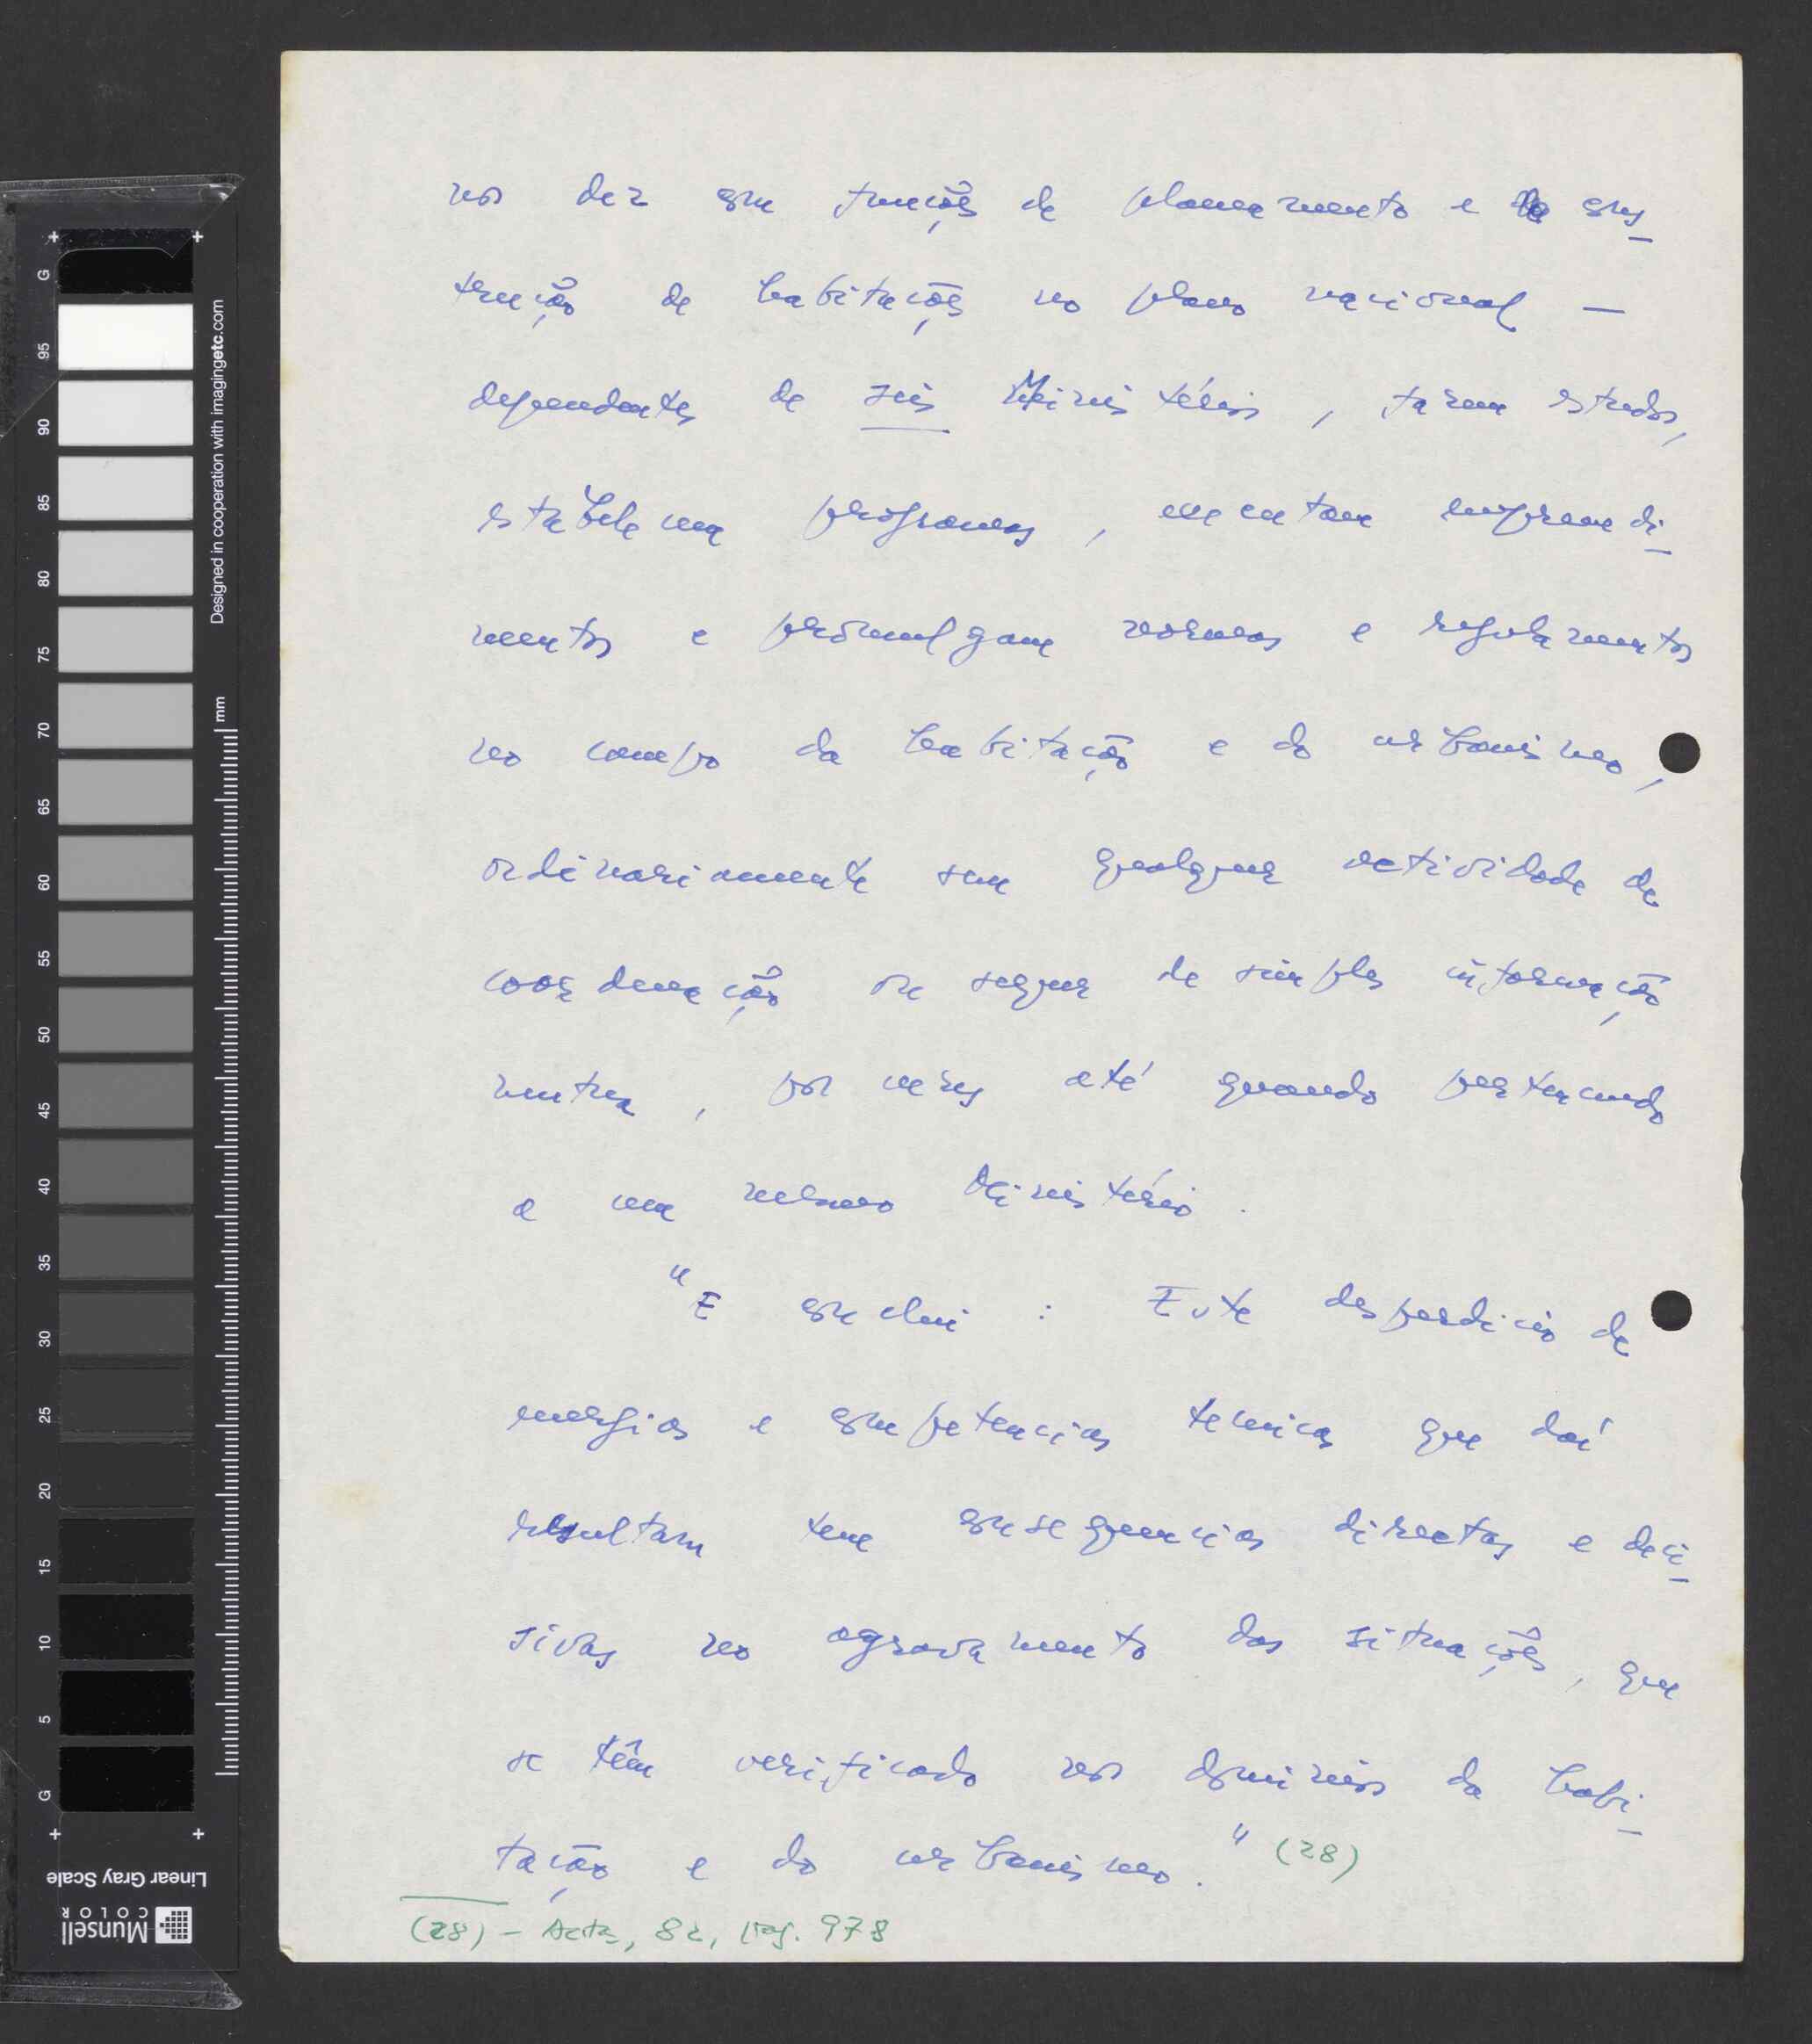 nos dez com funções de planeamento e de cons-
trução de habitações no plano nacional —
dependentes de seis Ministérios, fazem estudos,
estabelecem programas, executam empreendi-
mentos e promulgam normas e regulamentos
no campo da habitação e do urbanismo,
ordinariamente sem qualquer actividade de
coordenação ou sequer de simples informação
mutua, por vezes até quando pertencendo
a um mesmo Ministério.
"E conclui: Este desperdicio de
energias e competencias tecnicas que daí
resultam tem consequencias directas e deci-
sivas no agravamento das situações, que
se têm verificado nos dominios da habi-
tação e do urbanismo." (28)
(28) - Actas, 82, pag. 978
G 95 90 85 80 75 70 65 60 55 50 45 40 35 30 25 20 15 10 5 G
mm
Designed in cooperation with imagingetc.com
Linear Gray Scale
Munsell
COLOR